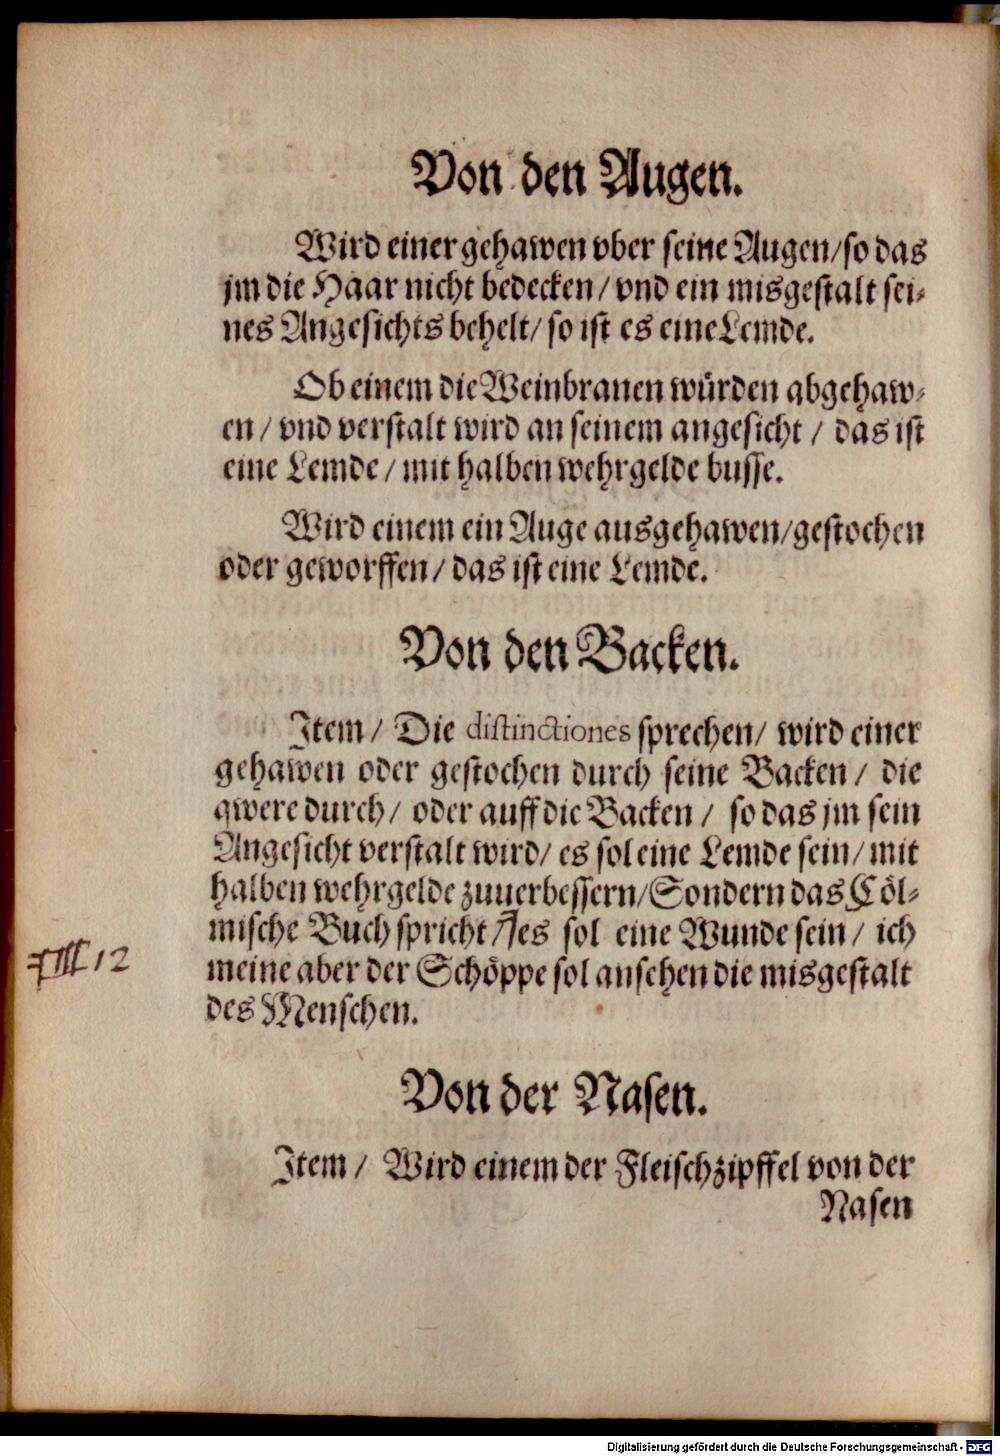 Von den Augen.
Wird einer gehawen vber seine Augen/so das
jm die Haar nicht bedecken/ vnd ein misgestalt sei-
nes Angesichts behelt/ so ist es eine Lemde.
Ob einem die Weinbranen würden abgehaw-
en/ vnd verstalt wird an seinem angesicht / das ist
eine Lemde/ mit halben wehrgelde busse.
Wird einem ein Auge ausgehawen/gestochen
oder geworffen/ das ist eine Lemde.
Von den Backen.
Item/ Die distinctiones sprechen/ wird einer
gehawen oder gestochen durch seine Backen/ die
qwere durch/ oder auff die Backen / so das jm sein
Angesicht verstalt wird/ es sol eine Lemde sein/ mit
halben wehrgelde zuuerbessern/Sondern das Cöl-
mische Buch spricht/ es sol eine Wunde sein/ ich
meine aber der Schöppe sol ansehen die misgestalt
des Menschen.
12
Von der Nasen.
Item/ Wird einem der Fleischzipffel von der
Nasen
Digitalisierung gefördert durch die Deutsche Forschungsgemeinschaft - DFG